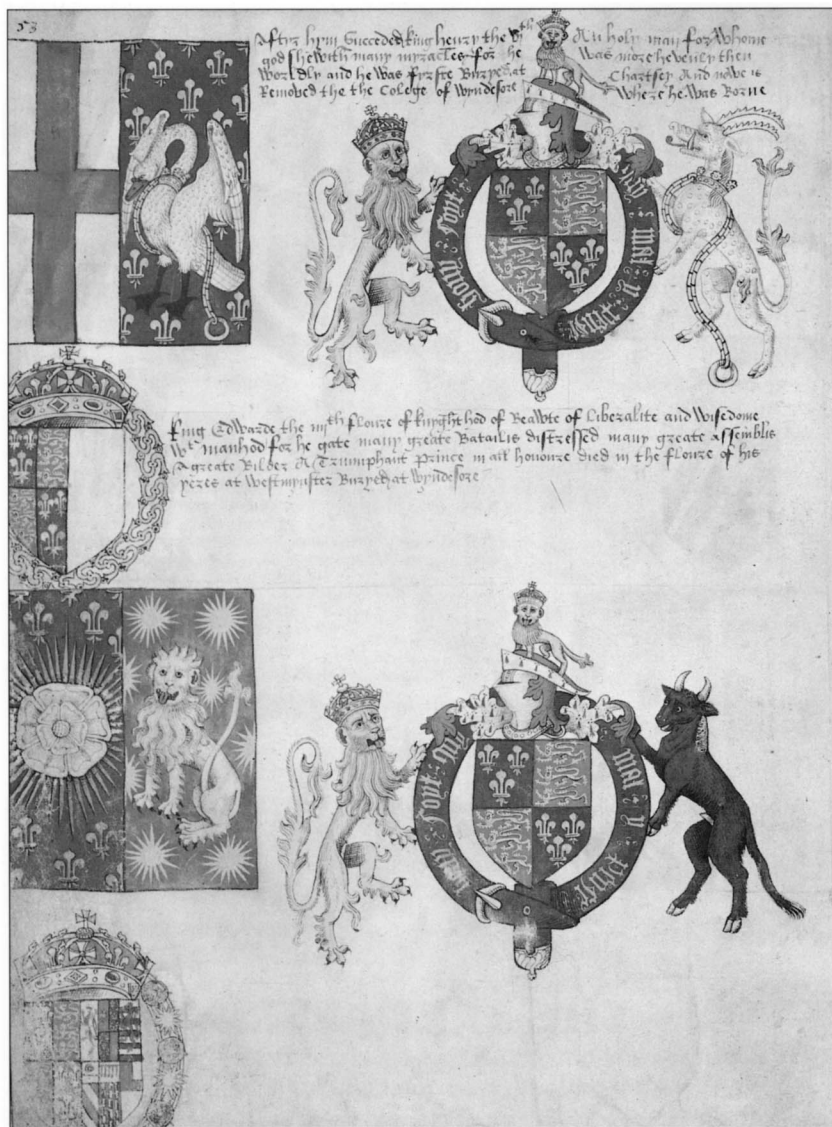 53
Aftyr hym Succeded king henry the vjth An holy man for Whome
god shewith many myracles for he was more hevenly then
Worldly and he was fyrste Buryed at Chartsey And nowe is
Removed the the Colege of Wyndesore Where he was Borne
honi soyt quy mal y penct
king Edwarde the iiijth floure of knyghthod of Beawte of Liberalite and Wisedome
Wt manhod for he gate many greate Batailis distressed many greate assemblis
A greate Bilder A Triumphant Prince in all honoure died in the floure of his
yeres at Westmynster Buryed at Wyndesore
honi soyt quy mal y penct